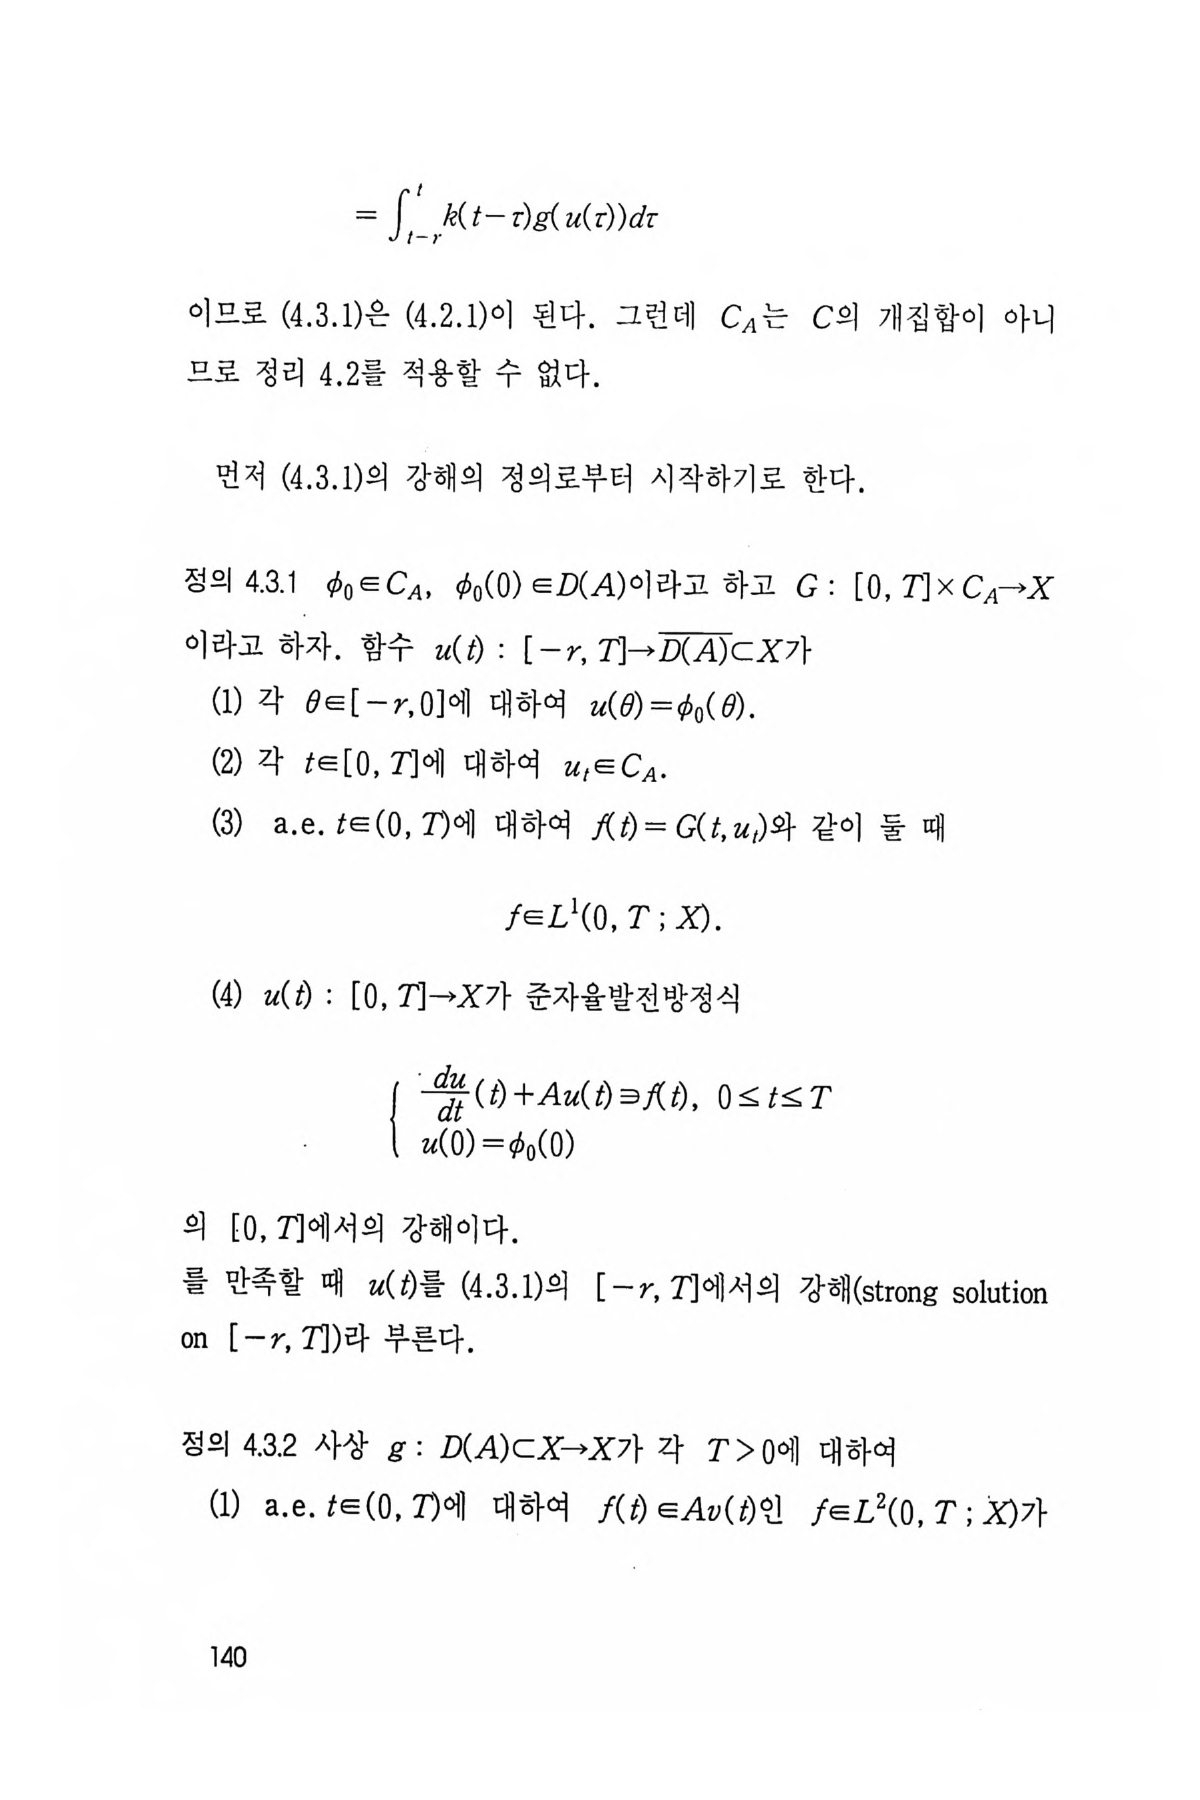 = ∫_{t−r}^{t} k(t−τ)g(u(τ))dτ
이므로 (4.3.1)은 (4.2.1)이 된다. 그런데 C_A는 C의 개집합이 아니
므로 정리 4.2를 적용할 수 없다.
먼저 (4.3.1)의 강해의 정의로부터 시작하기로 한다.
정의 4.3.1 ϕ₀∈C_A, ϕ₀(0)∈D(A)이라고 하고 G : [0, T]×C_A→X
이라고 하자. 함수 u(t) : [−r, T]→\overline{D(A)}⊂X가
(1) 각 θ∈[−r,0]에 대하여 u(θ)=ϕ₀(θ).
(2) 각 t∈[0, T]에 대하여 u_t∈C_A.
(3) a.e. t∈(0, T)에 대하여 f(t)=G(t,u_t)와 같이 둘 때
f∈L¹(0, T ; X).
(4) u(t) : [0, T]→X가 준자율발전방정식
{ du/dt (t)+Au(t)∋f(t), 0≤t≤T
u(0)=ϕ₀(0)
의 [0, T]에서의 강해이다.
를 만족할 때 u(t)를 (4.3.1)의 [−r, T]에서의 강해(strong solution
on [−r, T])라 부른다.
정의 4.3.2 사상 g : D(A)⊂X→X가 각 T>0에 대하여
(1) a.e. t∈(0, T)에 대하여 f(t)∈Av(t)인 f∈L²(0, T ; X)가
140